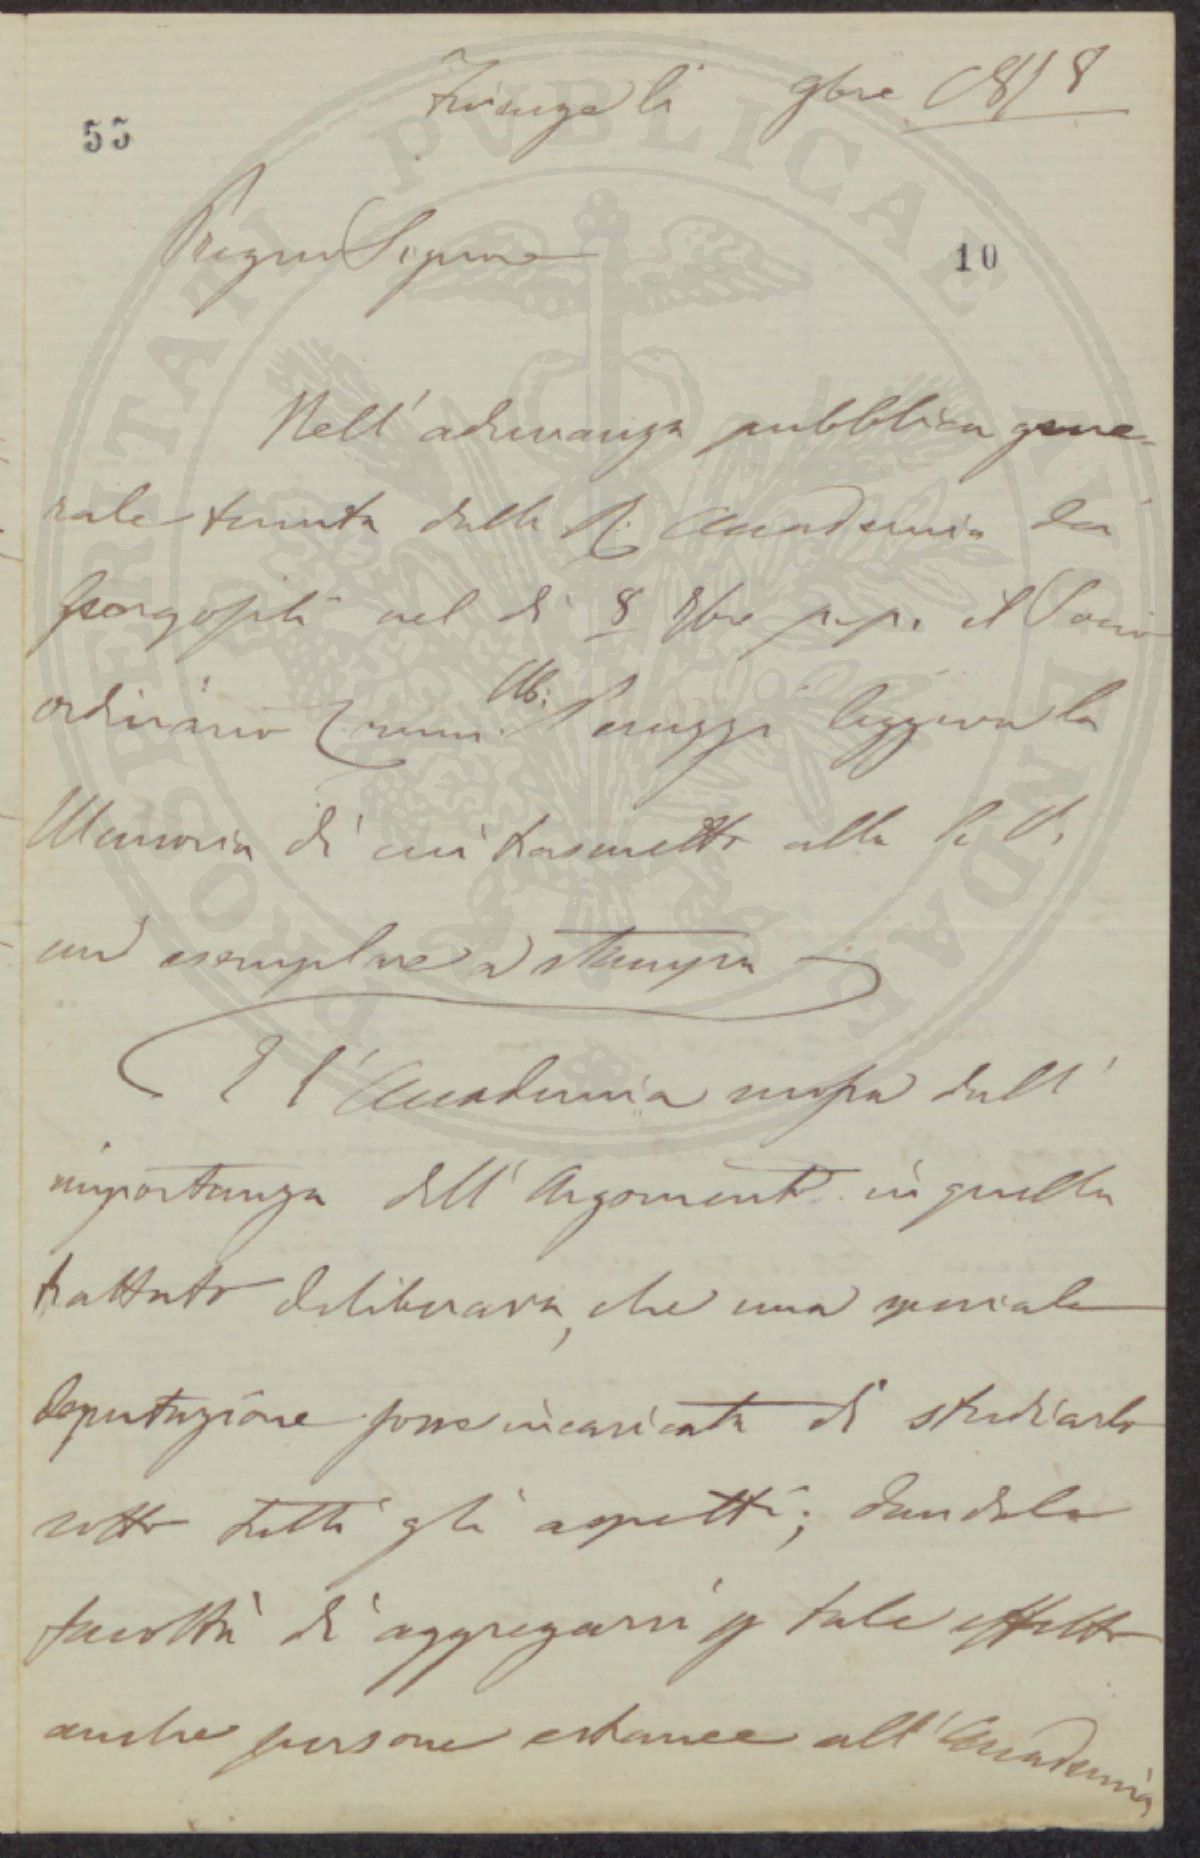 Firenze li 9bre 1878
55
Pregmo Signore
10
Nell' adunanza pubblica gene-
rale tenuta dalla R. Accademia dei
Georgofili nel dì 8 7bre p.p. il Socio
ordinario Comm. Ub: Peruzzi leggeva la
Memoria di cui trasmetto alla S. V.
un esemplare a stampa
E l'Accademia mossa dall'
importanza dell'Argomento in quella
trattato deliberava, che una speciale
deputazione fosse incaricata di studiarlo
sotto tutti gli aspetti; dandole
facoltà di aggregarsi p tale effetto
anche persone estranee all'Accademia
PROSPERITATI PUBLICAE AUGENDAE